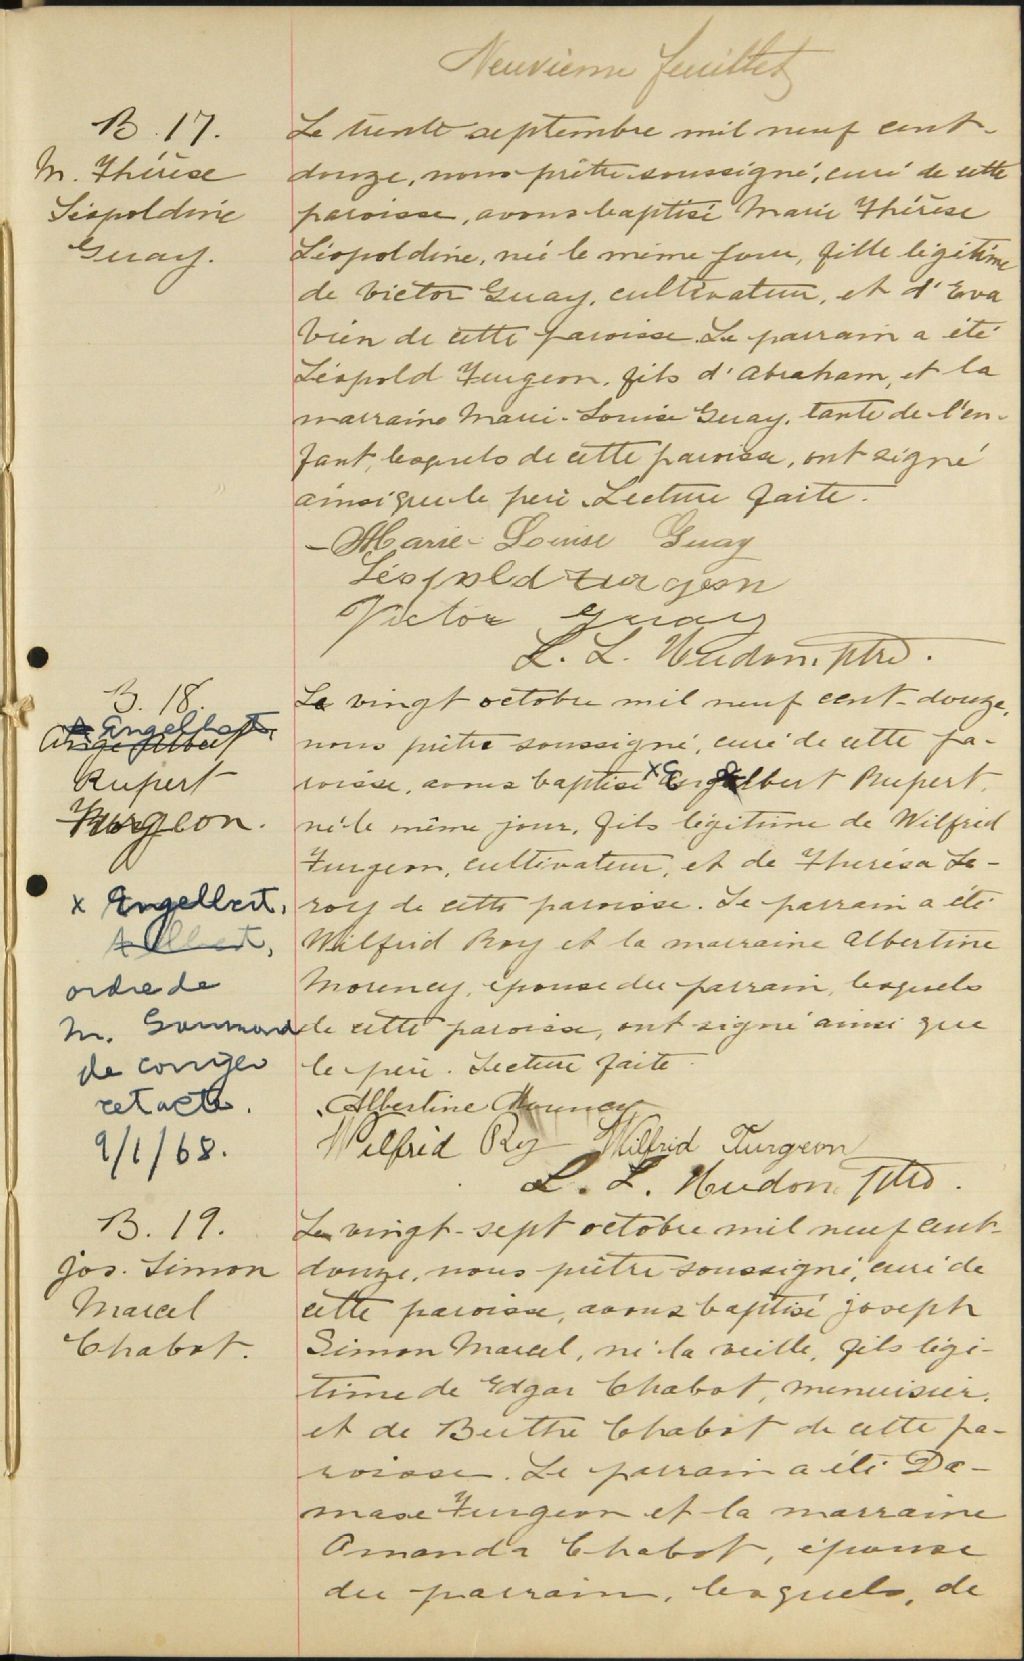 Neuvième feuillet
B. 17.
M. Thérèse
Léopoldine
Guay.
Le trente septembre mil neuf cent-
douze, nous prêtre soussigné, curé de cette
paroisse, avons baptisé Marie Thérèse
Léopoldine, née le même jour, fille légitime
de Victor Guay, cultivateur, et d'Eva
Vien de cette paroisse. Le parrain a été
Léopold Turgeon, fils d'Abraham, et la
marraine Marie-Louise Guay, tante de l'en-
fant, lesquels de cette paroisse, ont signé
ainsi que le père. Lecture faite.
Marie-Louise Guay
Léopold Turgeon
Victor Guay
L. L. Hudon, ptre.
B. 18.
Engelbert
Ange Albert
Rupert
Turgeon.
x Engelbert,
Albert,
ordre de
M.
de corriger
cet acte.
9/1/68.
Le vingt octobre mil neuf cent-douze,
nous prêtre soussigné, curé de cette pa-
roisse, avons baptisé x Engelbert Rupert,
né le même jour, fils légitime de Wilfrid
Turgeon, cultivateur, et de Thérésa Le-
roy de cette paroisse. Le parrain a été
Wilfrid Roy et la marraine Albertine
Morency, épouse du parrain, lesquels
de cette paroisse, ont signé ainsi que
le père. Lecture faite.
Albertine Morency
Wilfrid Roy Wilfrid Turgeon
L. L. Hudon, ptre.
B. 19.
Jos. Simon
Marcel
Chabot.
Le vingt-sept octobre mil neuf cent-
douze, nous prêtre soussigné, curé de
cette paroisse, avons baptisé Joseph
Simon Marcel, né la veille, fils légi-
time de Edgar Chabot, menuisier,
et de Berthe Chabot de cette pa-
roisse. Le parrain a été Da-
mase Turgeon et la marraine
Amanda Chabot, épouse
du parrain, lesquels, de